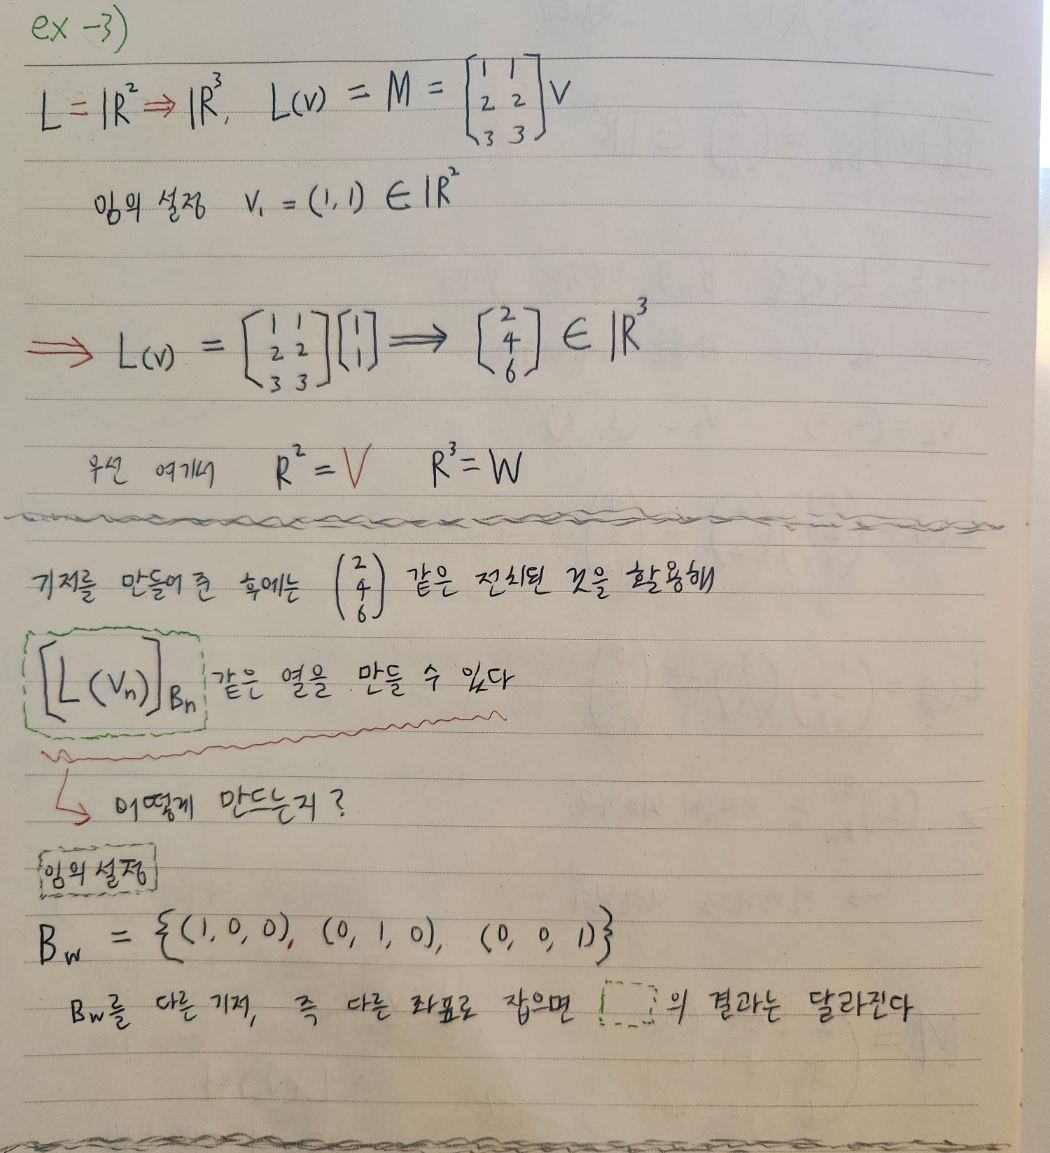 ex -3)
L = ℝ² ⇒ ℝ³, L(v) = M = [1 1; 2 2; 3 3] V
임의 설정 V₁ = (1, 1) ∈ ℝ²
⇒ L(v) = [1 1; 2 2; 3 3] [1; 1] ⟹ [2; 4; 6] ∈ ℝ³
우선 여기서 R² = V R³ = W
기저를 만들어 준 후에는 (2; 4; 6) 같은 전치된 것을 활용해
[L(Vₙ)]Bₙ 같은 열을 만들 수 있다
↳ 어떻게 만드는지?
임의 설정
B_w = {(1, 0, 0), (0, 1, 0), (0, 0, 1)}
B_w를 다른 기저, 즉 다른 좌표로 잡으면 [ ]의 결과는 달라진다